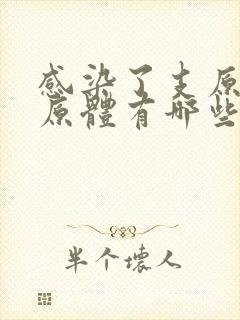 感染了支原
原體有哪些
半个壞人